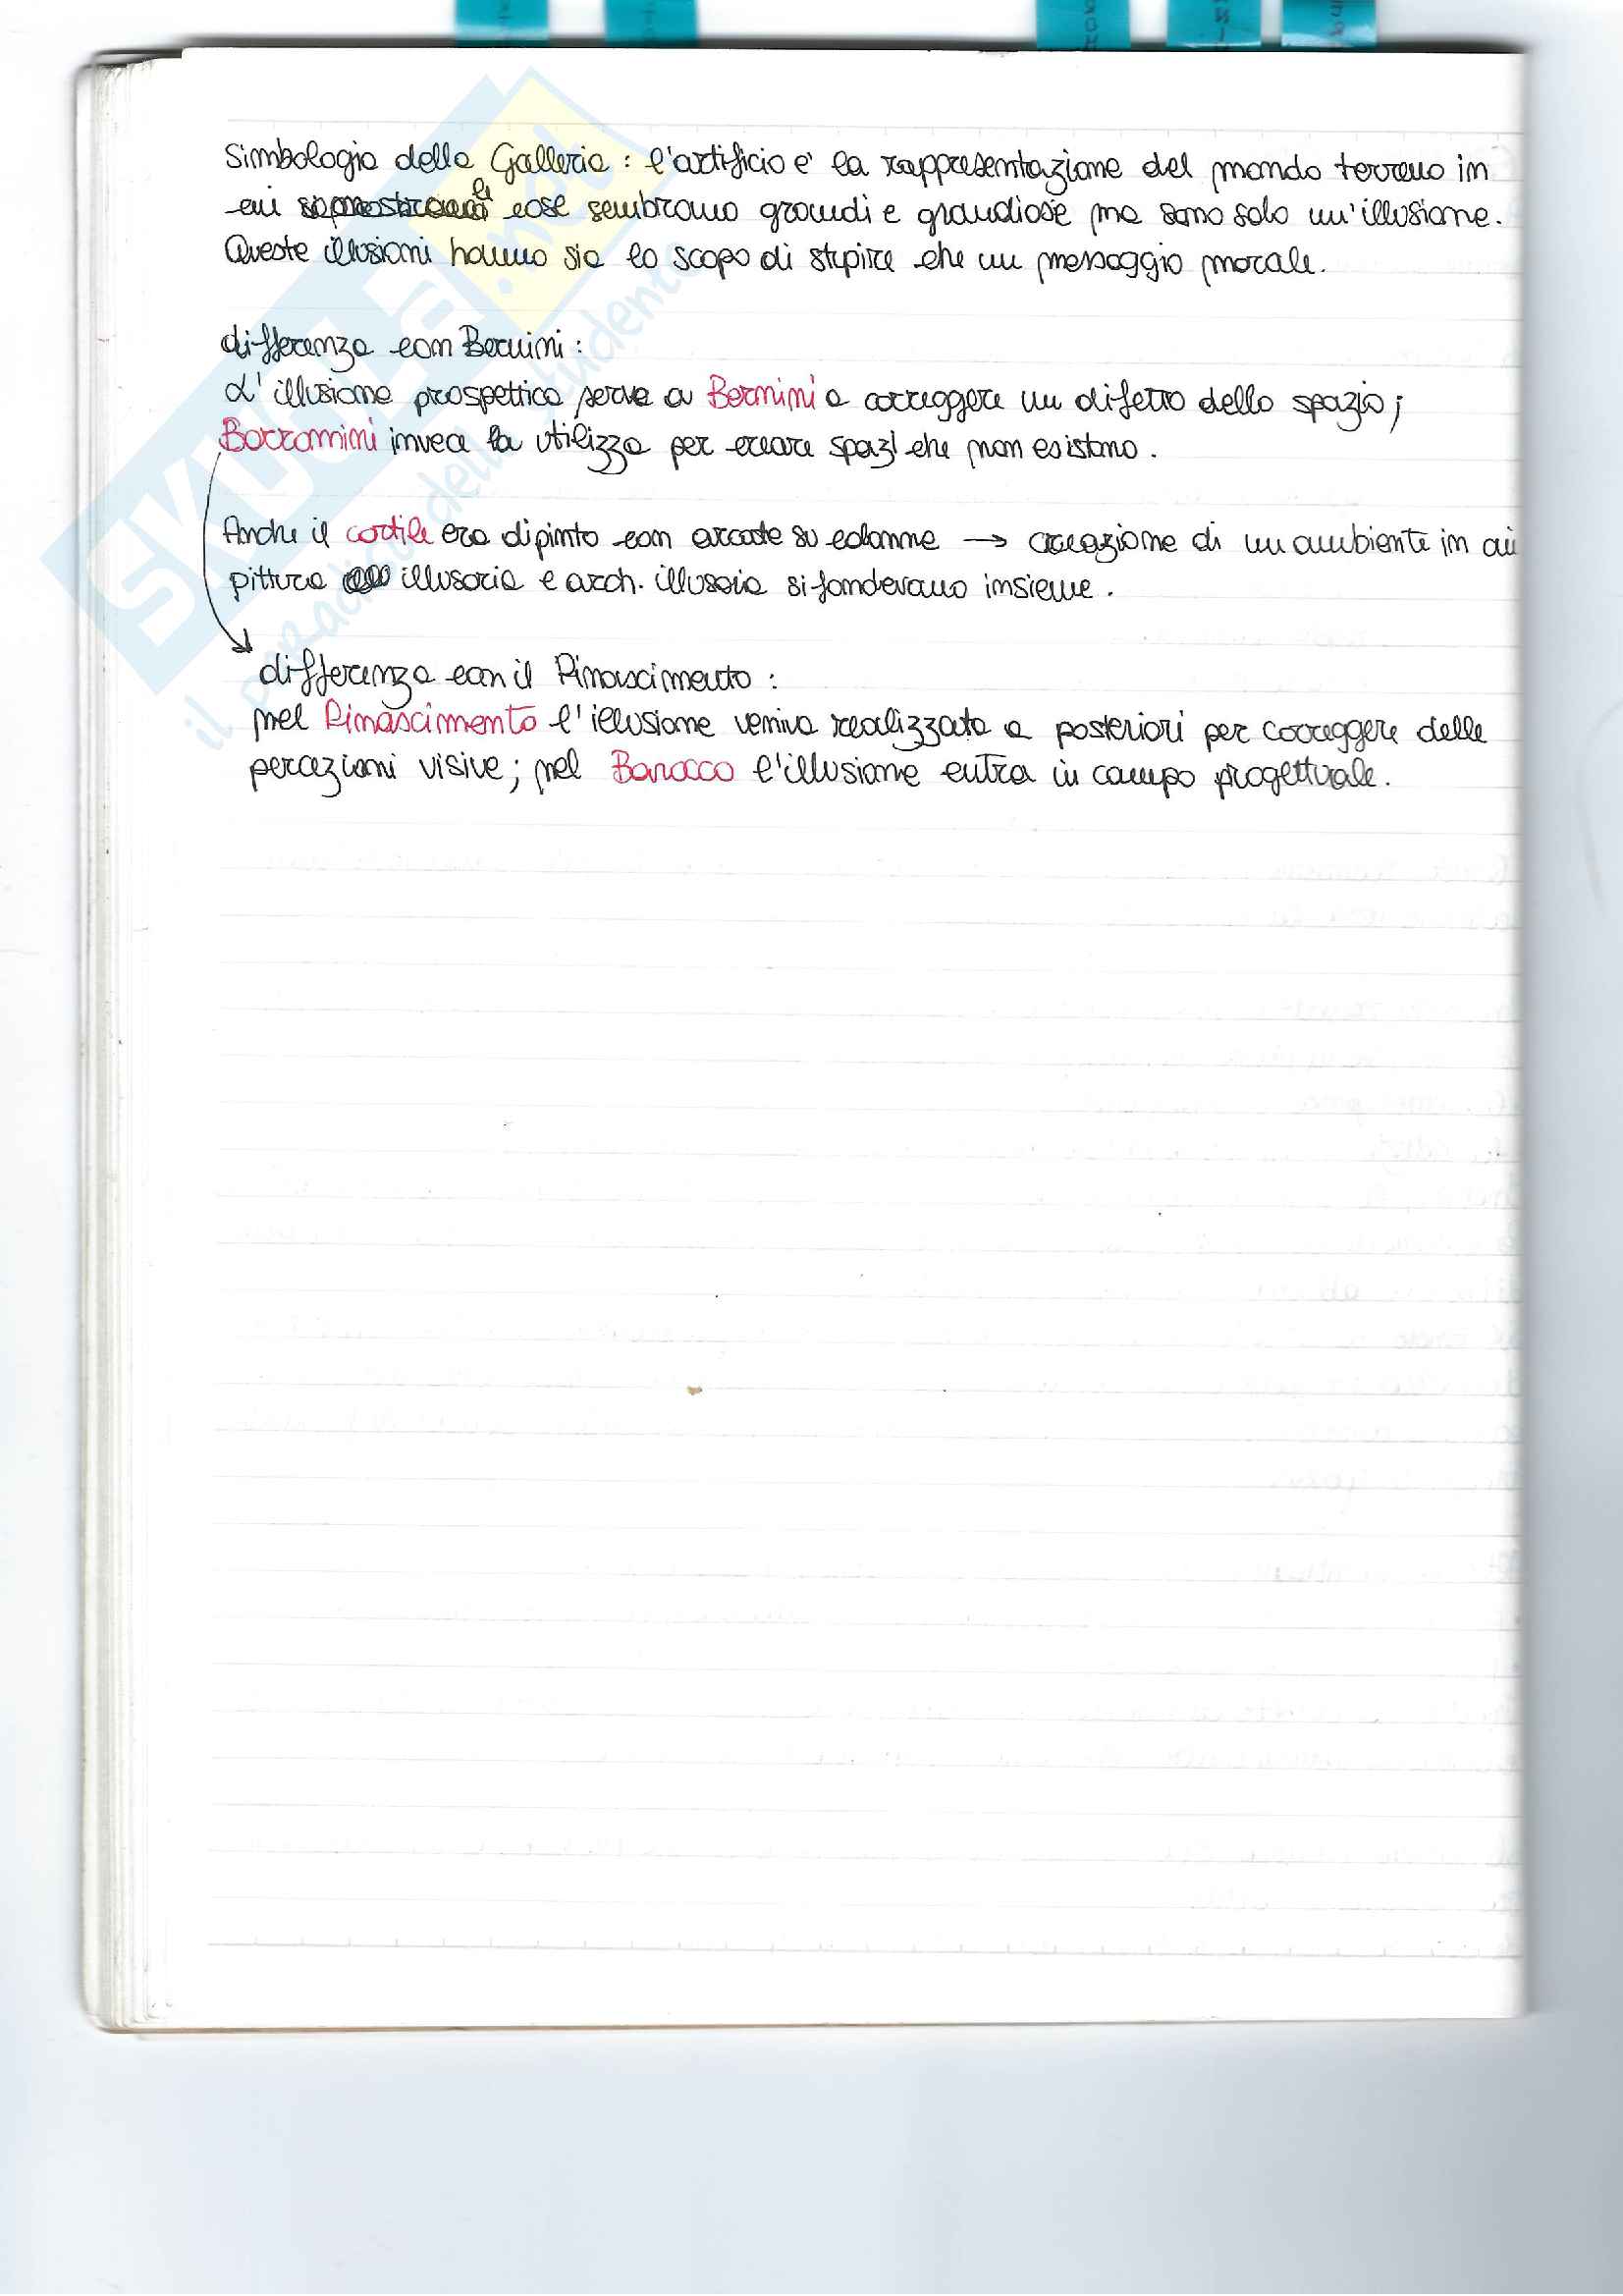 Simbologia della Galleria: l'artificio e' la rappresentazione del mondo terreno in
cui le cose sembrano grandi e grandiose ma sono solo un'illusione.
Queste illusioni hanno sia lo scopo di stupire che un messaggio morale.
differenza con Bernini:
L'illusione prospettica serve a Bernini a correggere un difetto dello spazio;
Borromini invece la utilizza per creare spazi che non esistono.
Anche il cortile era dipinto con arcate su colonne → creazione di un ambiente in cui
pittura illusoria e arch. illusoria si fondevano insieme.
differenza con il Rinascimento:
nel Rinascimento l'illusione veniva realizzata a posteriori per correggere delle
percezioni visive; nel Barocco l'illusione entra in campo progettuale.
SKUOLA.net
il paradiso dello studente